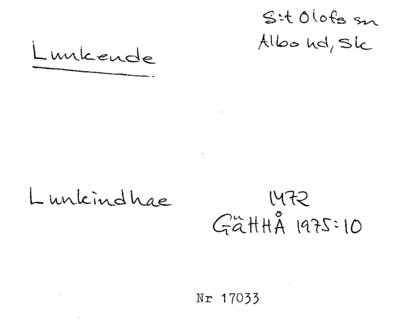 S:t Olofs sn
Albo hd, Sk
Lunkende
Lunkindhae 1472
GäHHÅ 1975:10
Nr 17033